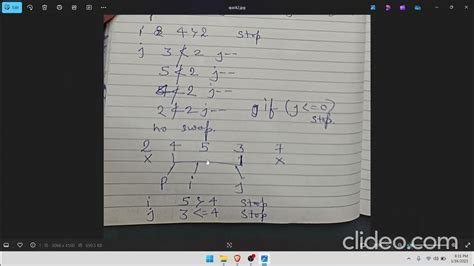 quick2.jpg
i 2 4>2 stop
j 3<2 j--
5<2 j--
4<2 j--
2<2 j-- if (j<=0)
stop.
no swap.
2 4 5 3 7
X X
P i j
i 5>4 stop
j 3<=4 stop
clideo.com